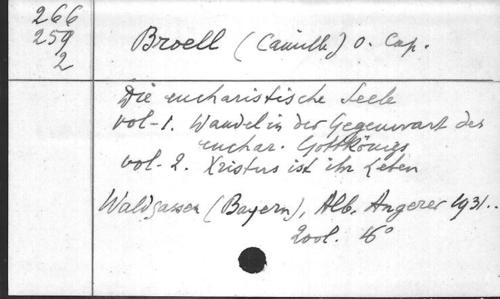 266
259
2
Broell (Camille) O. Cap.
Die eucharistische Seele
vol-1. Wandel in der Gegenwart des
euchar. Gottkönigs
vol-2. Xristus ist ihr Leben
Waldsassen (Bayern), Alb. Angerer 1931..
2vol. 16°